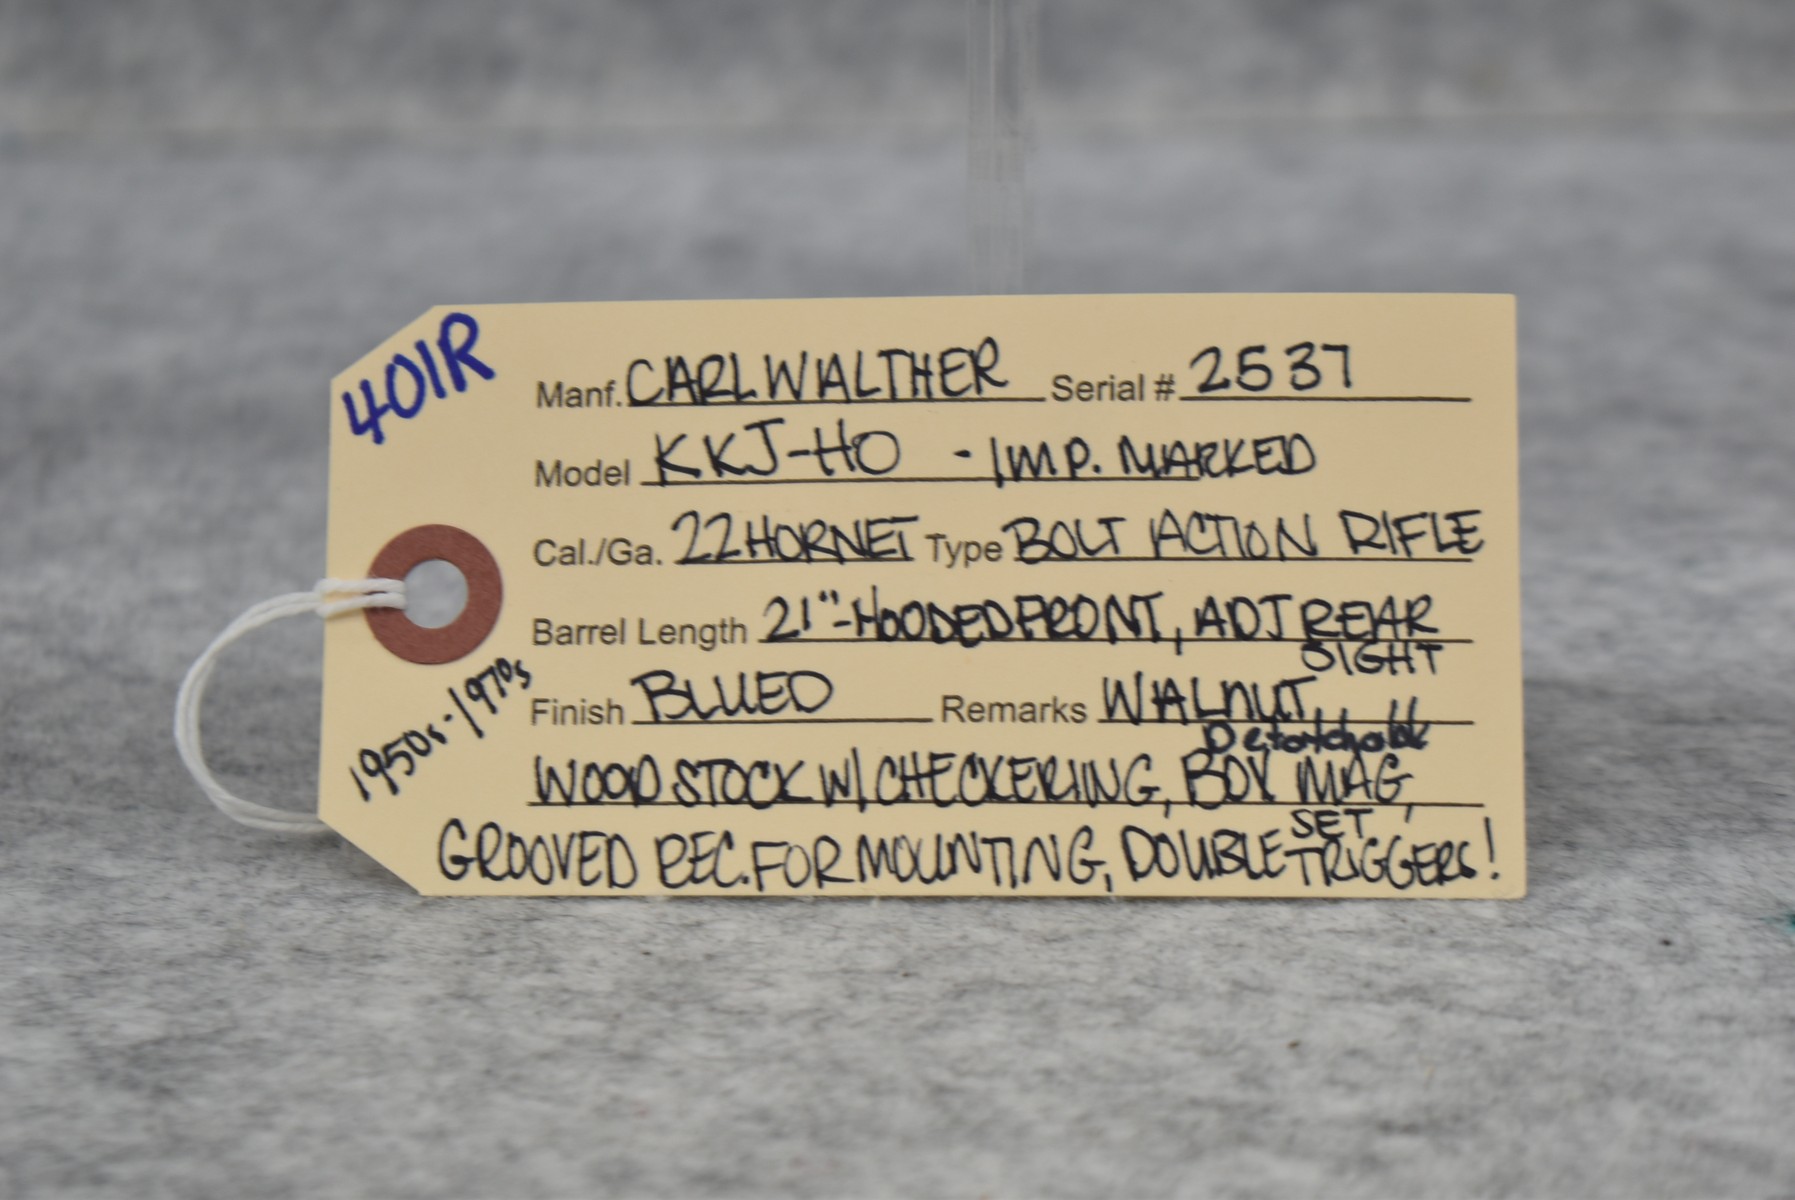 401R
Manf. CARL WALTHER Serial # 2537
Model KKJ-HO - IMP. MARKED
Cal./Ga. 22 HORNET Type BOLT ACTION RIFLE
Barrel Length 21" - HOODED FRONT, ADJ REAR
SIGHT
1950s-1970s
Finish BLUED Remarks WALNUT
Detatchable
WOOD STOCK W/ CHECKERING, BOX MAG,
SET
GROOVED REC. FOR MOUNTING, DOUBLE TRIGGERS!